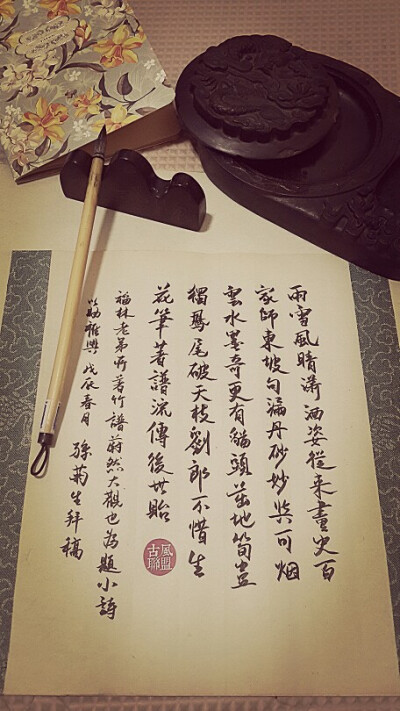 雨雪風晴瀟洒姿從來畫史百
家師東坡句漏丹砂妙與可烟
雲水墨奇更有貓頭茁地筍豈
獨鳳尾破天枝劉郎不惜生
花筆著譜流傳後世貽
福林老弟所著竹譜蔚然大觀也為題小詩
以助雅興 戊辰春月 孫菊生拜稿